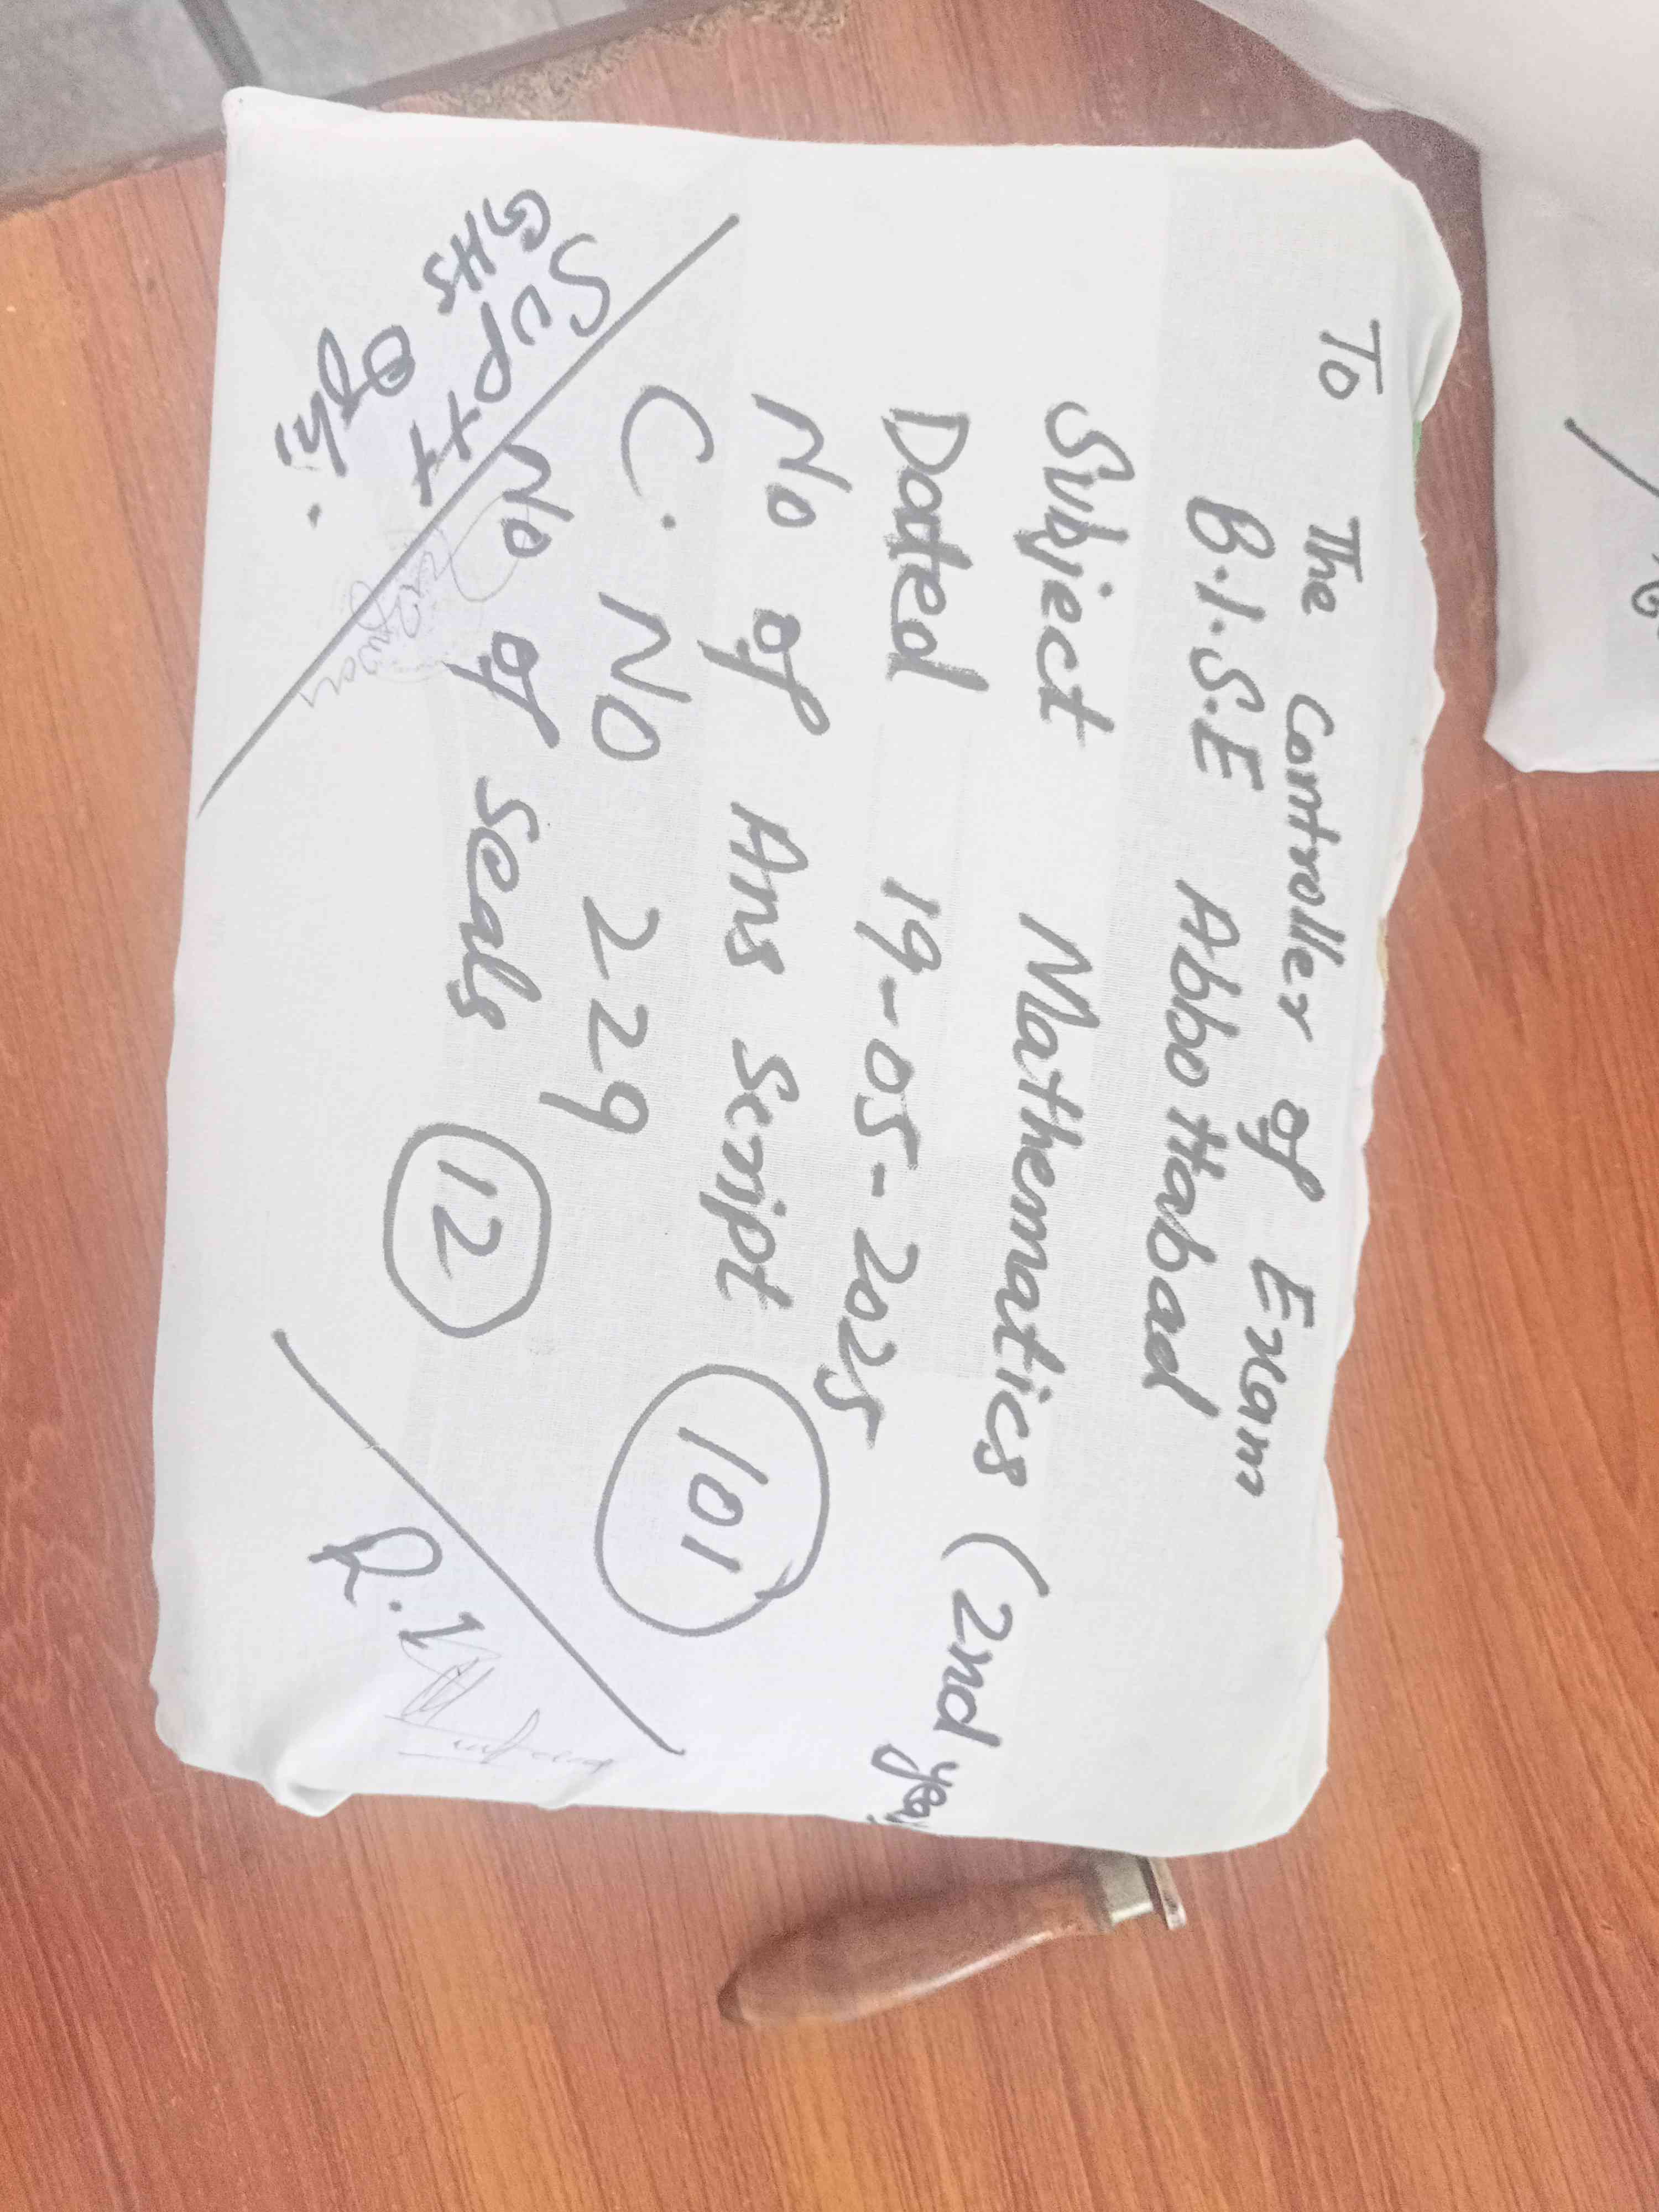 To The Controller of Exam
B.I.S.E Abbottabad
Subject Mathematics (2nd year
Dated 19-05-2025
No of Ans Script 101
C. No 229
No of Seals 12
Suptt
GHS Oghi.
R.I